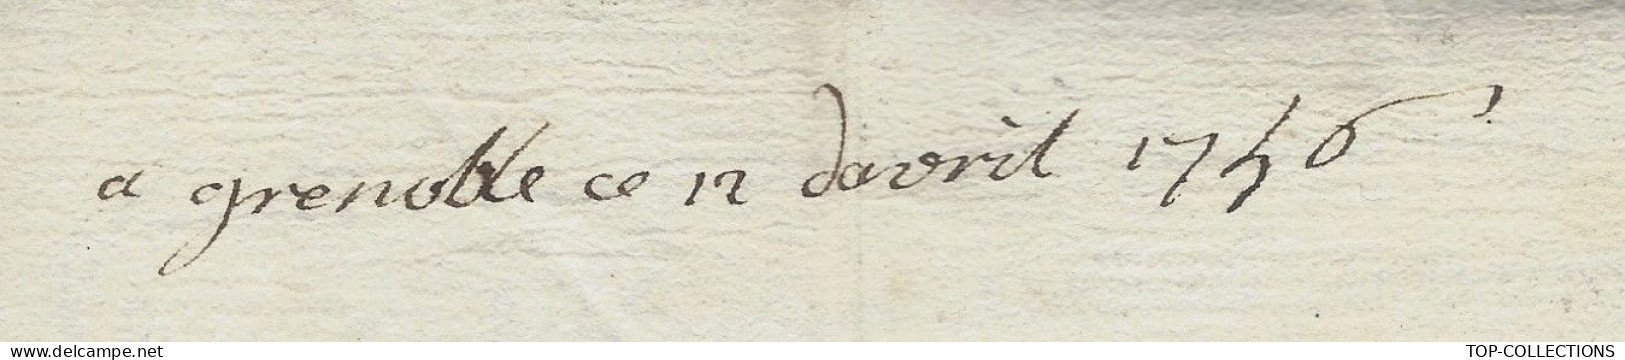 a grenoble ce 12 davril 1746
www.delcampe.net
TOP-COLLECTIONS